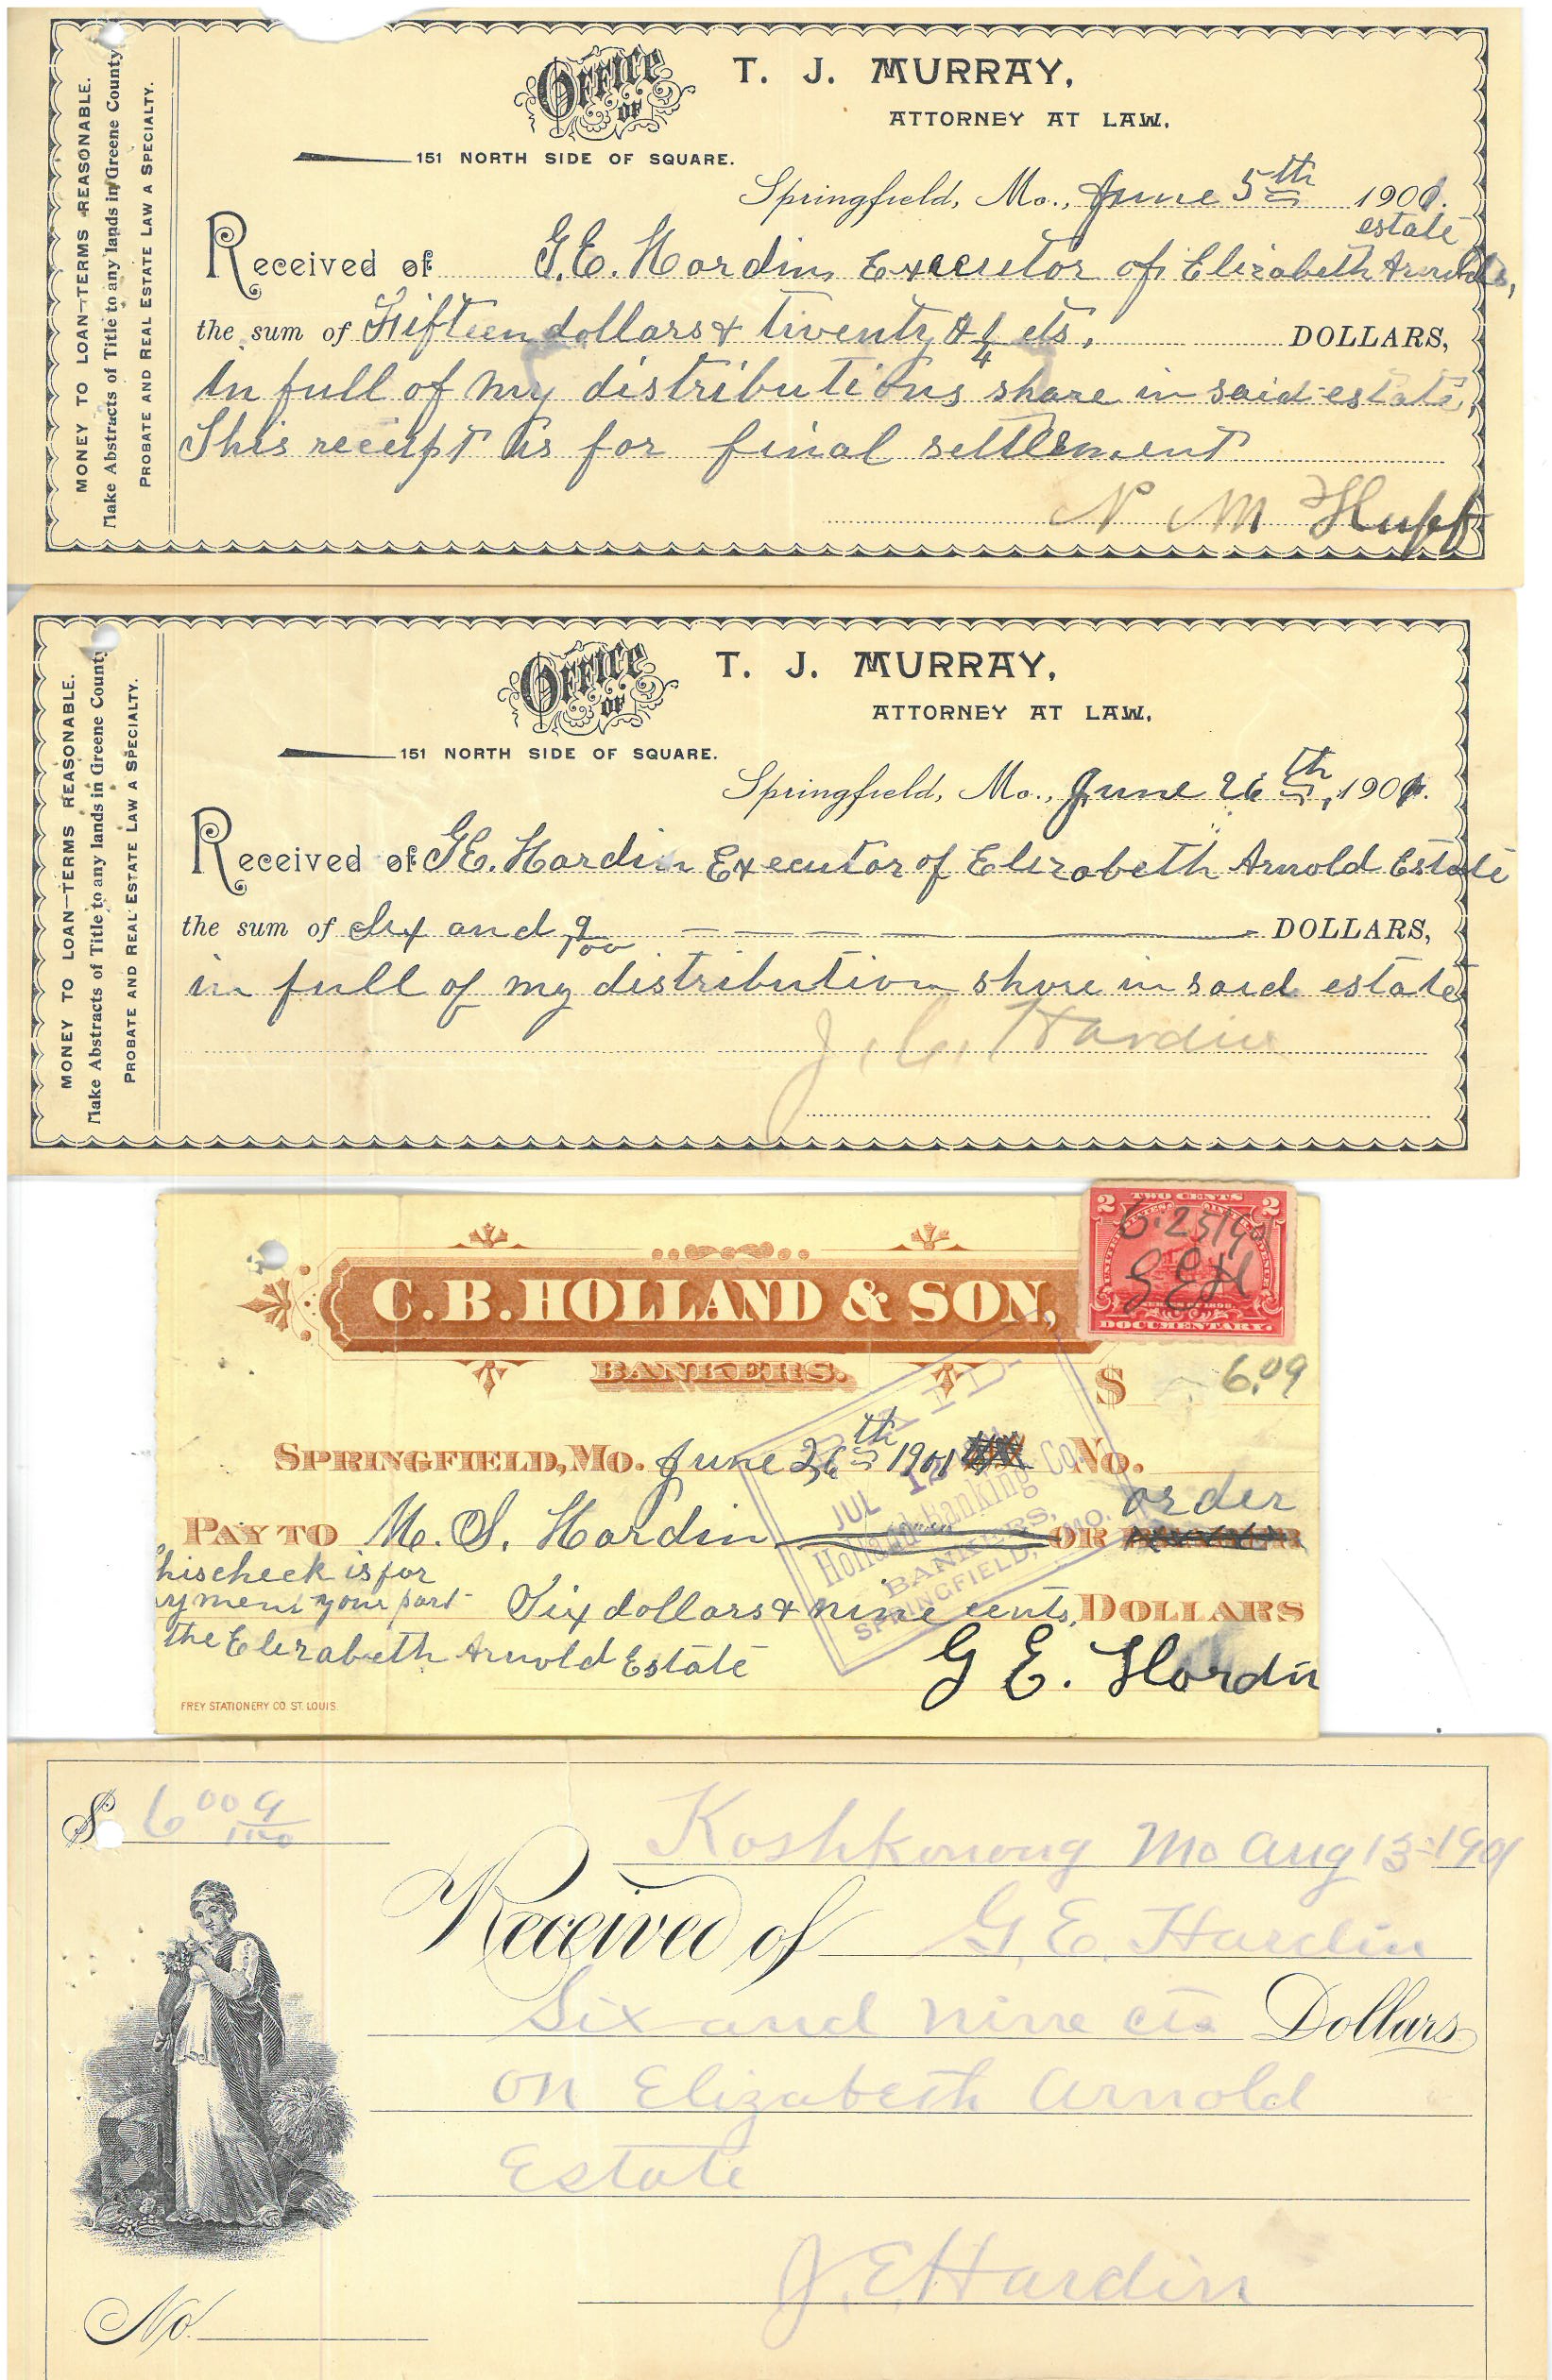 MONEY TO LOAN—TERMS REASONABLE.
Make Abstracts of Title to any lands in Greene County
PROBATE AND REAL ESTATE LAW A SPECIALTY.
OFFICE OF T. J. MURRAY,
ATTORNEY AT LAW.
151 NORTH SIDE OF SQUARE.
Springfield, Mo., June 5th 1901.
estate
Received of G.E. Hardin, Executor of Elizabeth Arnolds,
the sum of Fifteen dollars & twenty & 1/4 cts. DOLLARS,
in full of my distributions share in said estate,
This receipt is for final settlement
N M Huff
MONEY TO LOAN—TERMS REASONABLE.
Make Abstracts of Title to any lands in Greene County
PROBATE AND REAL ESTATE LAW A SPECIALTY.
OFFICE OF T. J. MURRAY,
ATTORNEY AT LAW.
151 NORTH SIDE OF SQUARE.
Springfield, Mo., June 26th, 1901.
Received of G.E. Hardin Executor of Elizabeth Arnold Estate
the sum of Six and 9/100 DOLLARS,
in full of my distribution share in said estate
J. C. Hardin
2 TWO CENTS 2
6.25/1901
GEH
DOCUMENTARY.
C. B. HOLLAND & SON,
BANKERS.
$ 6.09
SPRINGFIELD, MO. June 26th 1901 No.
PAID
JUL 12
Holland Banking Co.
BANKERS,
SPRINGFIELD, MO.
order
PAY TO M. S. Hardin OR BEARER
his check is for
yment your part Six dollars & nine cents, DOLLARS
the Elizabeth Arnold Estate
G E. Hardin
FREY STATIONERY CO. ST. LOUIS
$ 6 00 9/100
Koshkonong Mo Aug 13-1901
Received of G. E. Hardin
Six and nine cts Dollars
on Elizabeth Arnold
Estate
J. E Hardin
No.